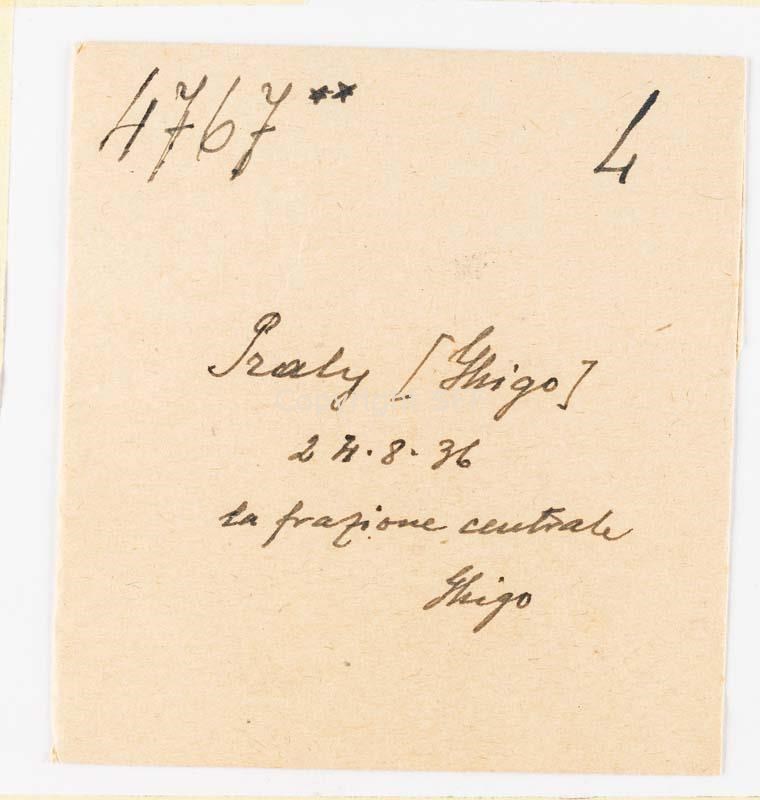 4767** 4
Praly [Ghigo]
24.8.36
la frazione centrale
Ghigo